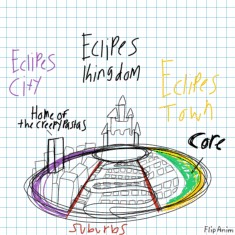 Eclipes
City
Eclipes
Khingdom
Eclipes
Town
Home of
the creepypastas
Core
Suburbs
FlipAnim